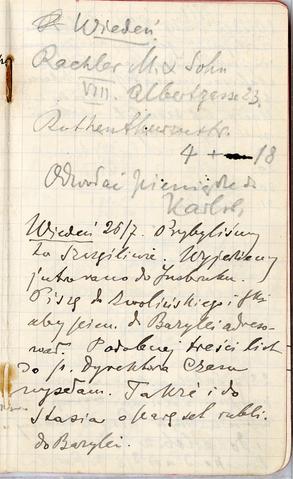 Wiedeń.
Rachler M. & Sohn
VIII. Albertgasse 23.
Rothenthurmstr.
4 + 18
Odwołać pieniądze do
Karlsb.
Wiedeń 26/7. Przybyliśmy
tu szczęśliwie. Wyjeżdżamy
jutro rano do Insbruku.
Piszę do Zwolińskiego i
aby pien. do Bazylei adreso-
wał. Podobnej treści list
do p. Dyrektora Czasu
wysłałam. Także i do
Stasia o parę set rubli.
do Bazylei.